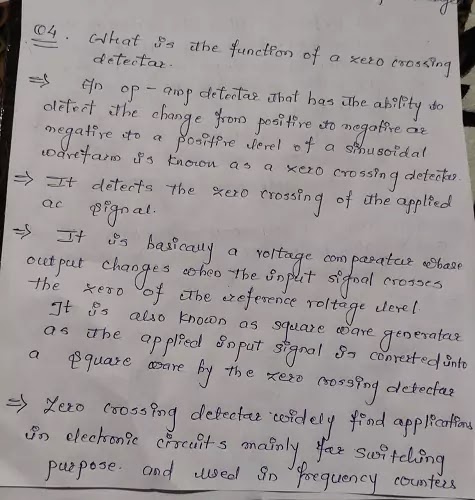 Q4. What is the function of a zero crossing
detector.
⇒ An op-amp detector that has the ability to
detect the change from positive to negative or
negative to a positive level of a sinusoidal
waveform is known as a zero crossing detector.
⇒ It detects the zero crossing of the applied
ac signal.
⇒ It is basically a voltage comparator whose
output changes when the input signal crosses
the zero of the reference voltage level
It is also known as square wave generator
as the applied input signal is converted into
a square wave by the zero crossing detector
⇒ Zero crossing detector widely find applications
in electronic circuits mainly for switching
purpose. and used in frequency counters